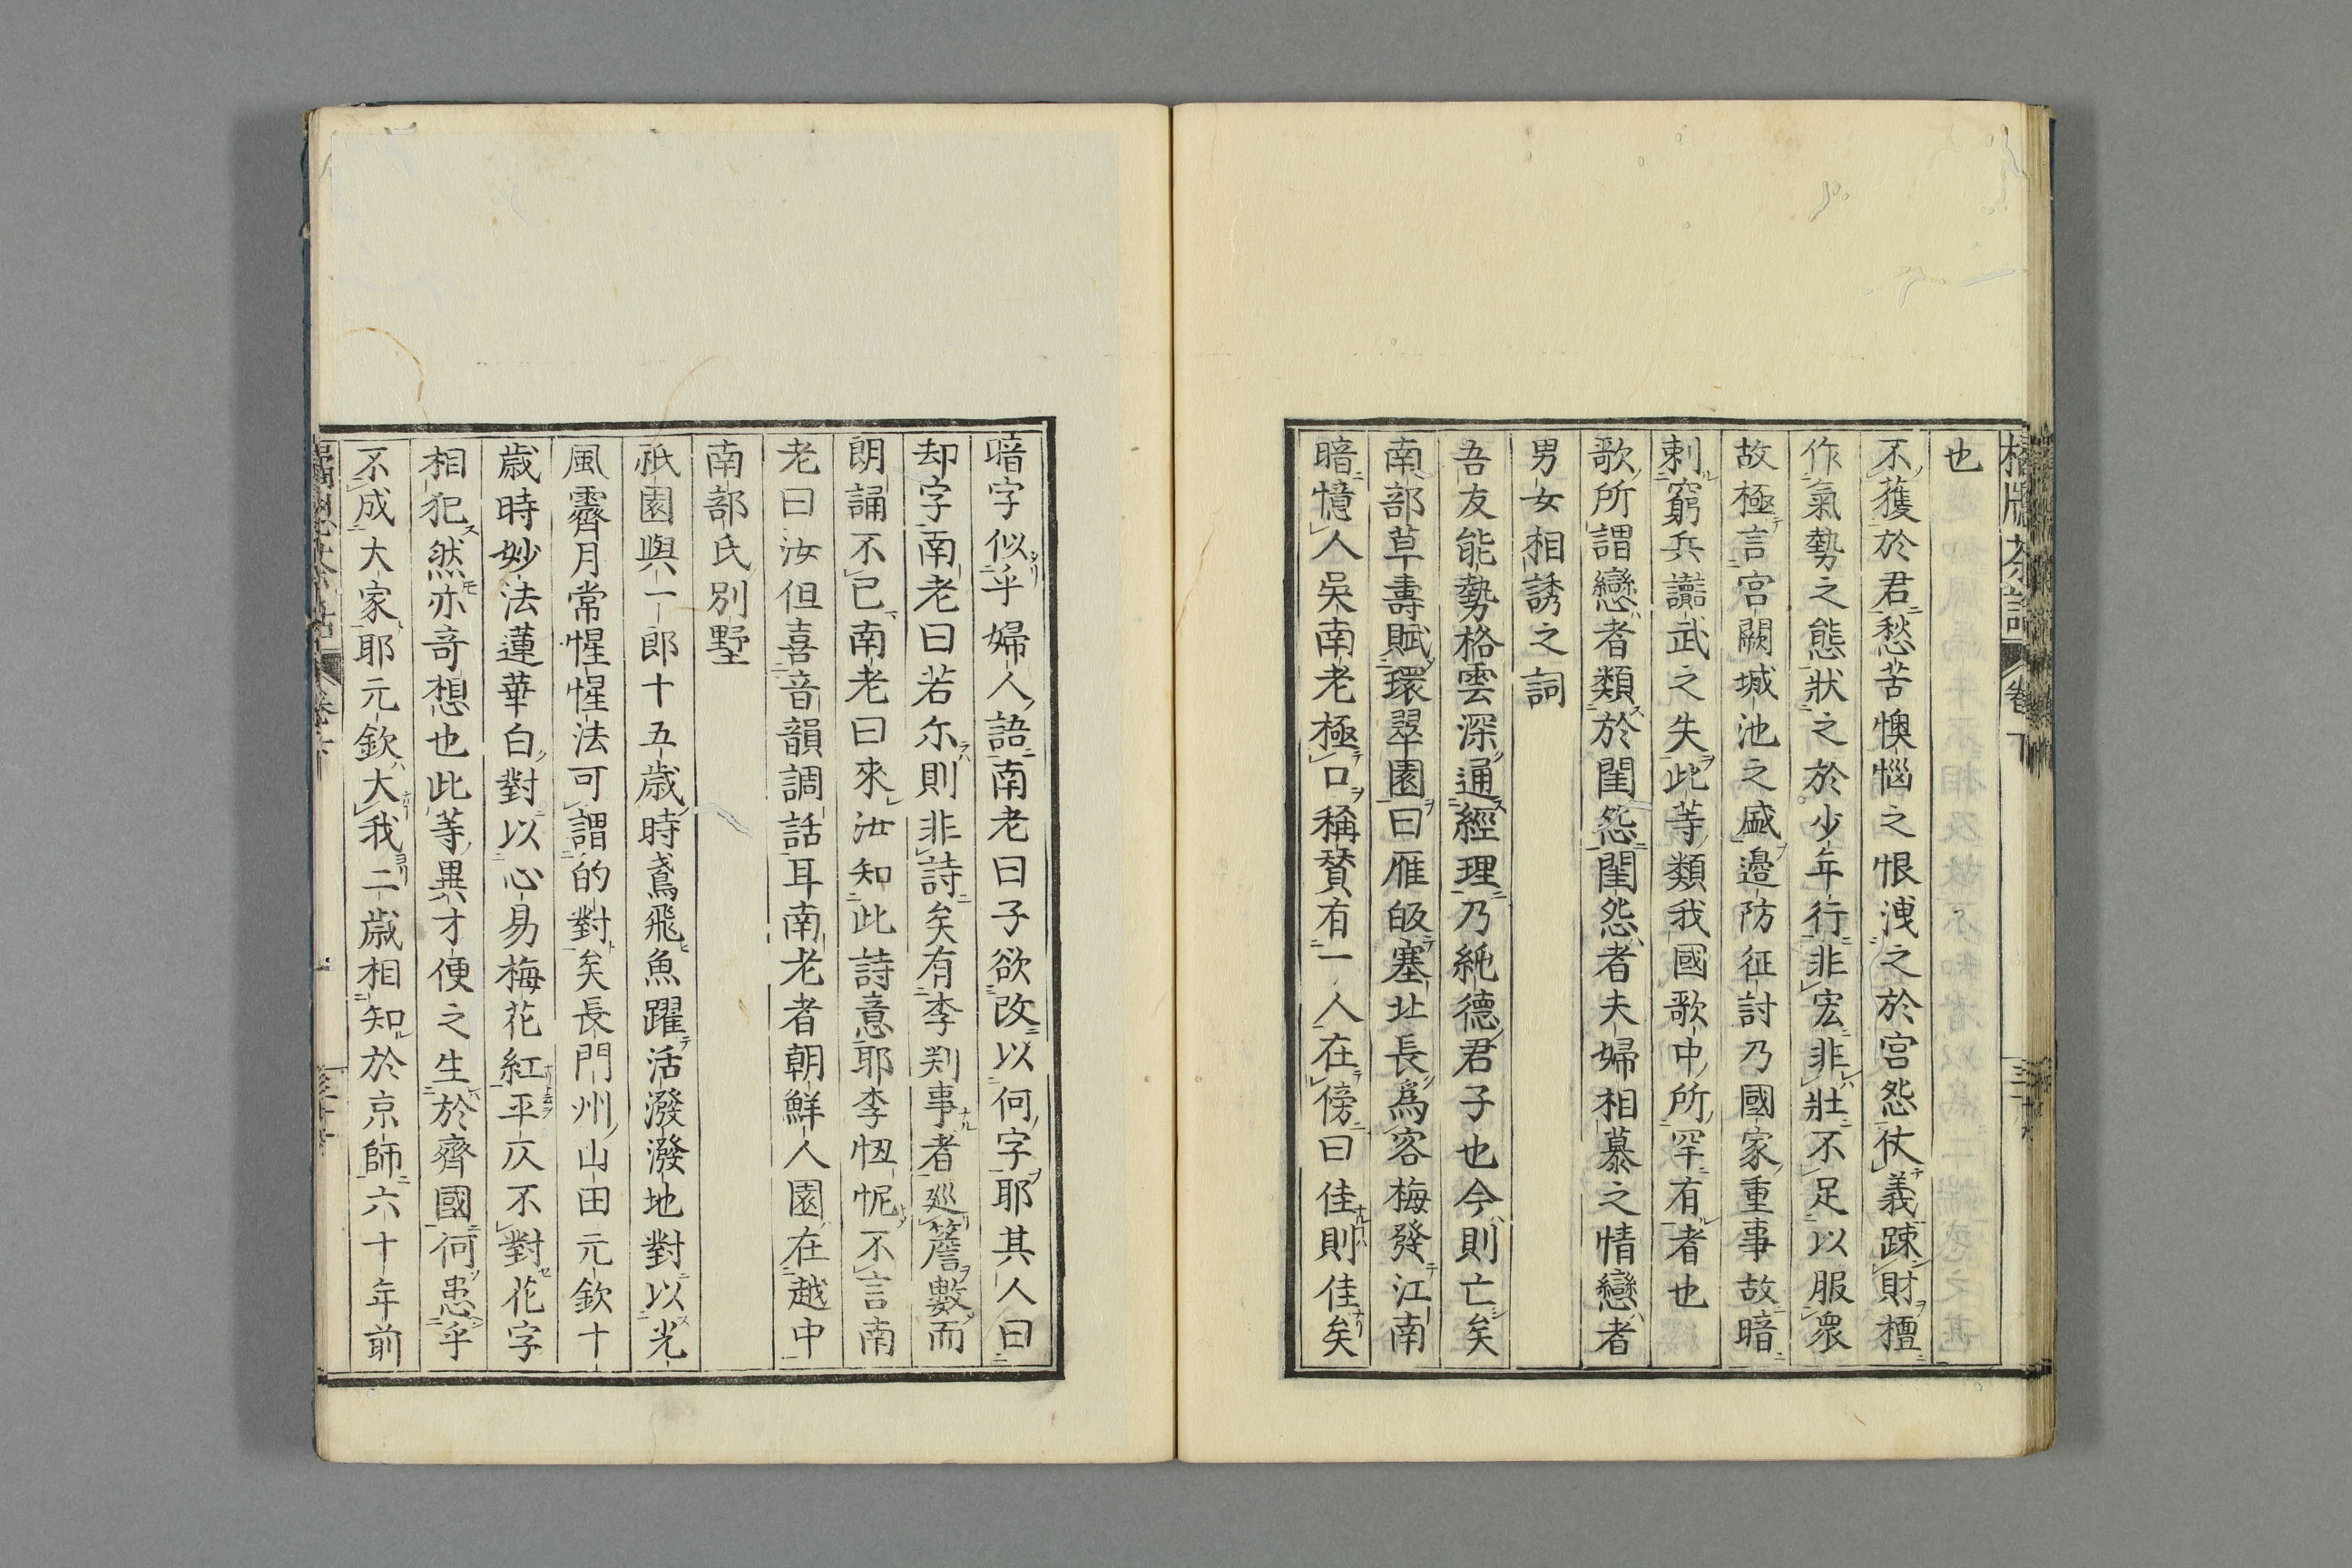 也
不獲於君愁苦懊惱之恨洩之於宮怨仗義踈財擅
作氣勢之態狀之於少年行非宏非壯不足以服衆
故極言宮闕城池之盛邊防征討乃國家重事故暗
刺窮兵讟武之失此等類我國歌中所罕有者也
歌所謂戀者類於閨怨閨怨者夫婦相慕之情戀者
男女相誘之詞
吾友能勢格雲深通經理乃純德君子也今則亡矣
南部草壽賦環翠園曰雁皈塞北長爲客梅發江南
暗憶人吳南老極口稱賛有一人在傍曰佳則佳矣
暗字似乎婦人語南老曰子欲改以何字耶其人曰
却字南老曰若尓則非詩矣有李判事者廵簷數而
朗誦不已南老曰來汝知此詩意耶李忸怩不言南
老曰汝但喜音韻調話耳南老者朝鮮人園在越中
南部氏別墅
祇園與一郎十五歲時鳶飛魚躍活潑潑地對以光
風霽月常惺惺法可謂的對矣長門州山田元欽十
歲時妙法蓮華白對以心易梅花紅平仄不對花字
相犯然亦奇想也此等異才便之生於齊國何患乎
不成大家耶元欽大我二歲相知於京師六十年前